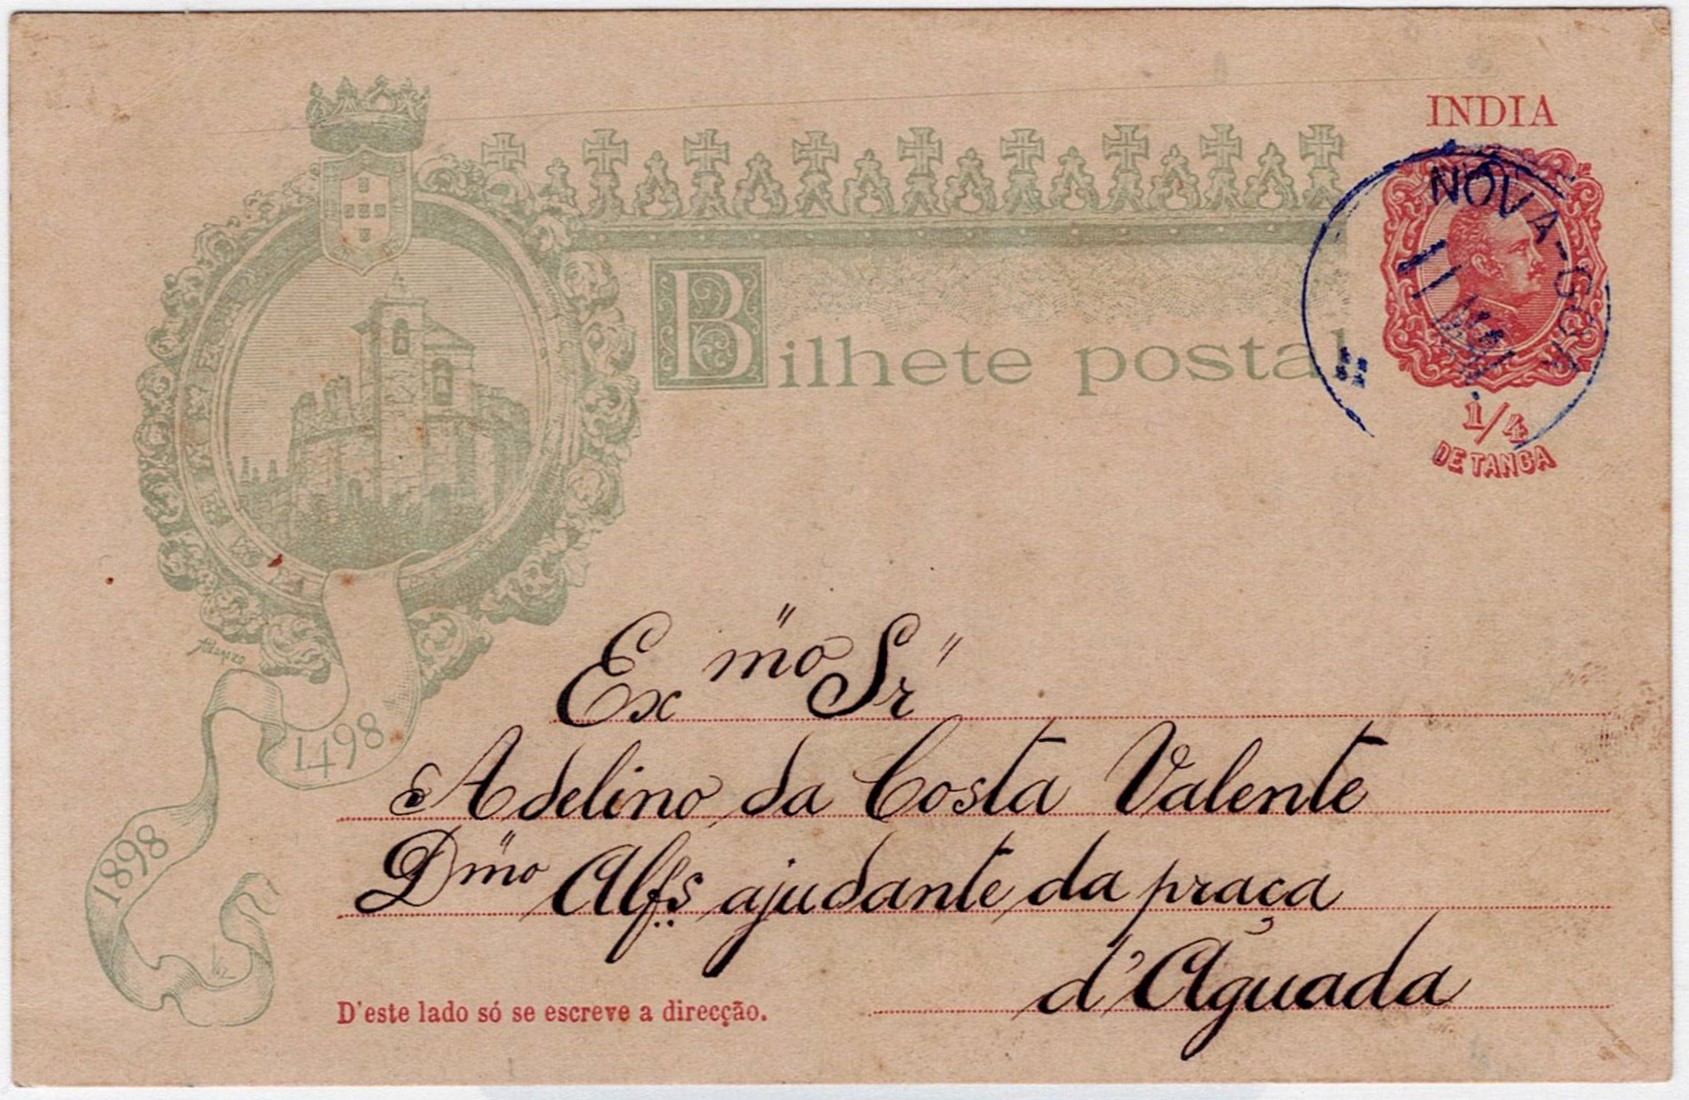 INDIA
NOVA-GOA
11
Bilhete postal
1/4
DE TANGA
Ex mo Sr
Adelino da Costa Valente
Dmo Alfs ajudante da praça
d'Aguada
1498
1898
D'este lado só se escreve a direcção.